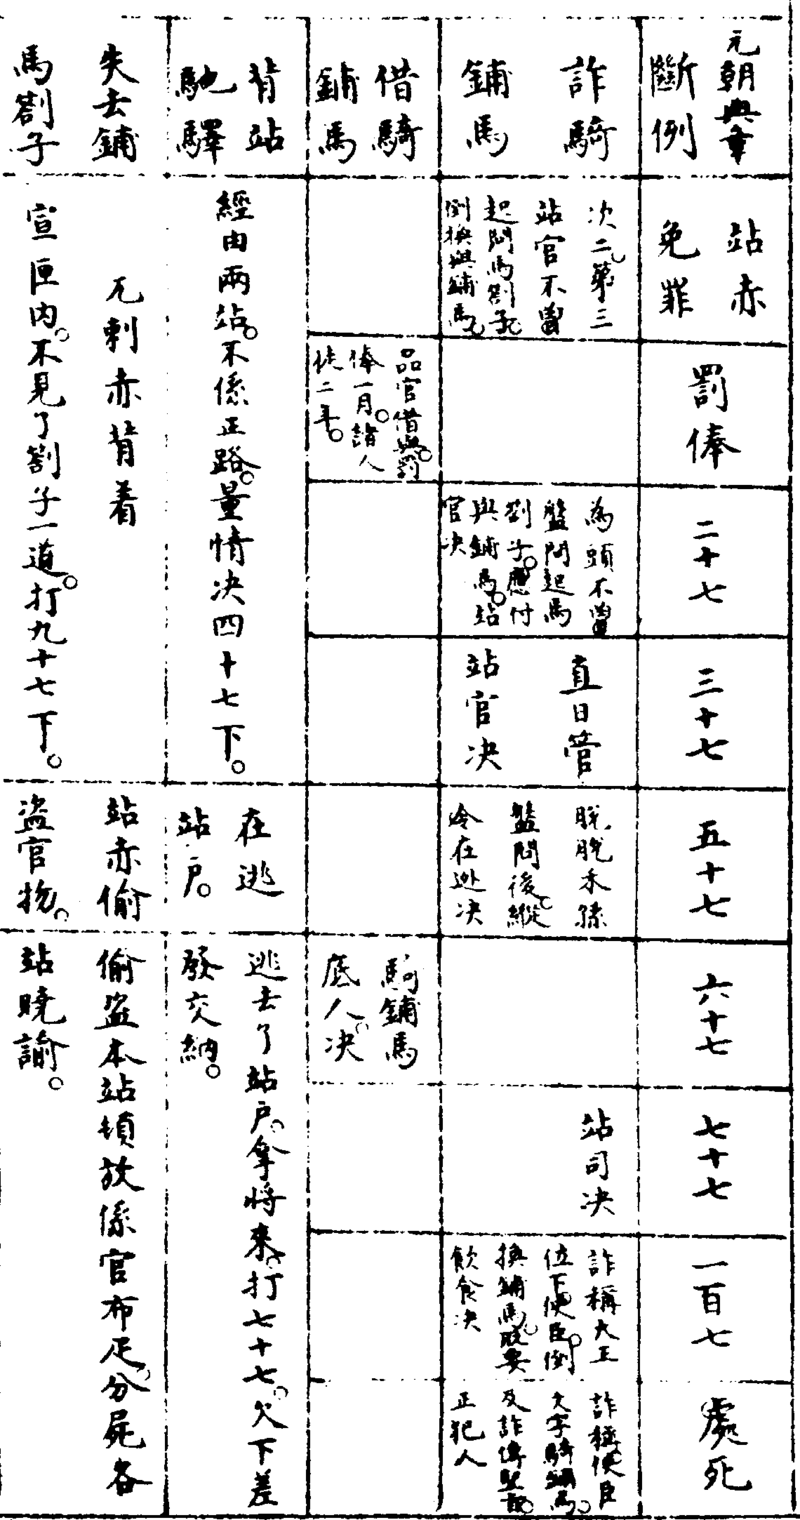 元朝典章
斷例
站赤
免罪
罰俸
二十七
三十七
五十七
六十七
七十七
一百七
處死
詐騎
鋪馬
次二。第三
站官不曾
起問馬劄子。
倒換與鋪馬。
為頭不曾
盤問起馬
劄子。應付
與鋪馬。站
官決
直日管
站官決
脫脫禾孫
盤問後。縱
令在逃決
站司決
詐稱大王
位下使臣。倒
換鋪馬。取要
飲食決
詐稱使臣
文字騎鋪馬。
及詐傳聖旨。
正犯人
借騎
鋪馬
品官借與。罰
俸一月。諸人
徒二年。
騎鋪馬
底人。決
背站
馳驛
經由兩站。不係正路。量情决四十七下。
在逃
站戶。
逃去了站戶。拿將來。打七十七。欠下差
發交納。
失去鋪
馬劄子
兀剌赤背着
宣匣內。不見了劄子一道。打九十七下。
站赤偷
盜官物。
偷盜本站頓放係官布疋。分屍各
站曉諭。